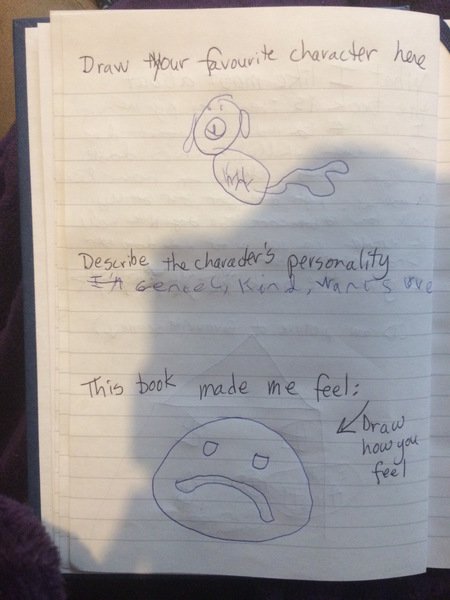 Draw Your favourite character here
Describe the character's personality
I'A Gentel, Kind, Wants
This book made me feel:
Draw
how you
feel